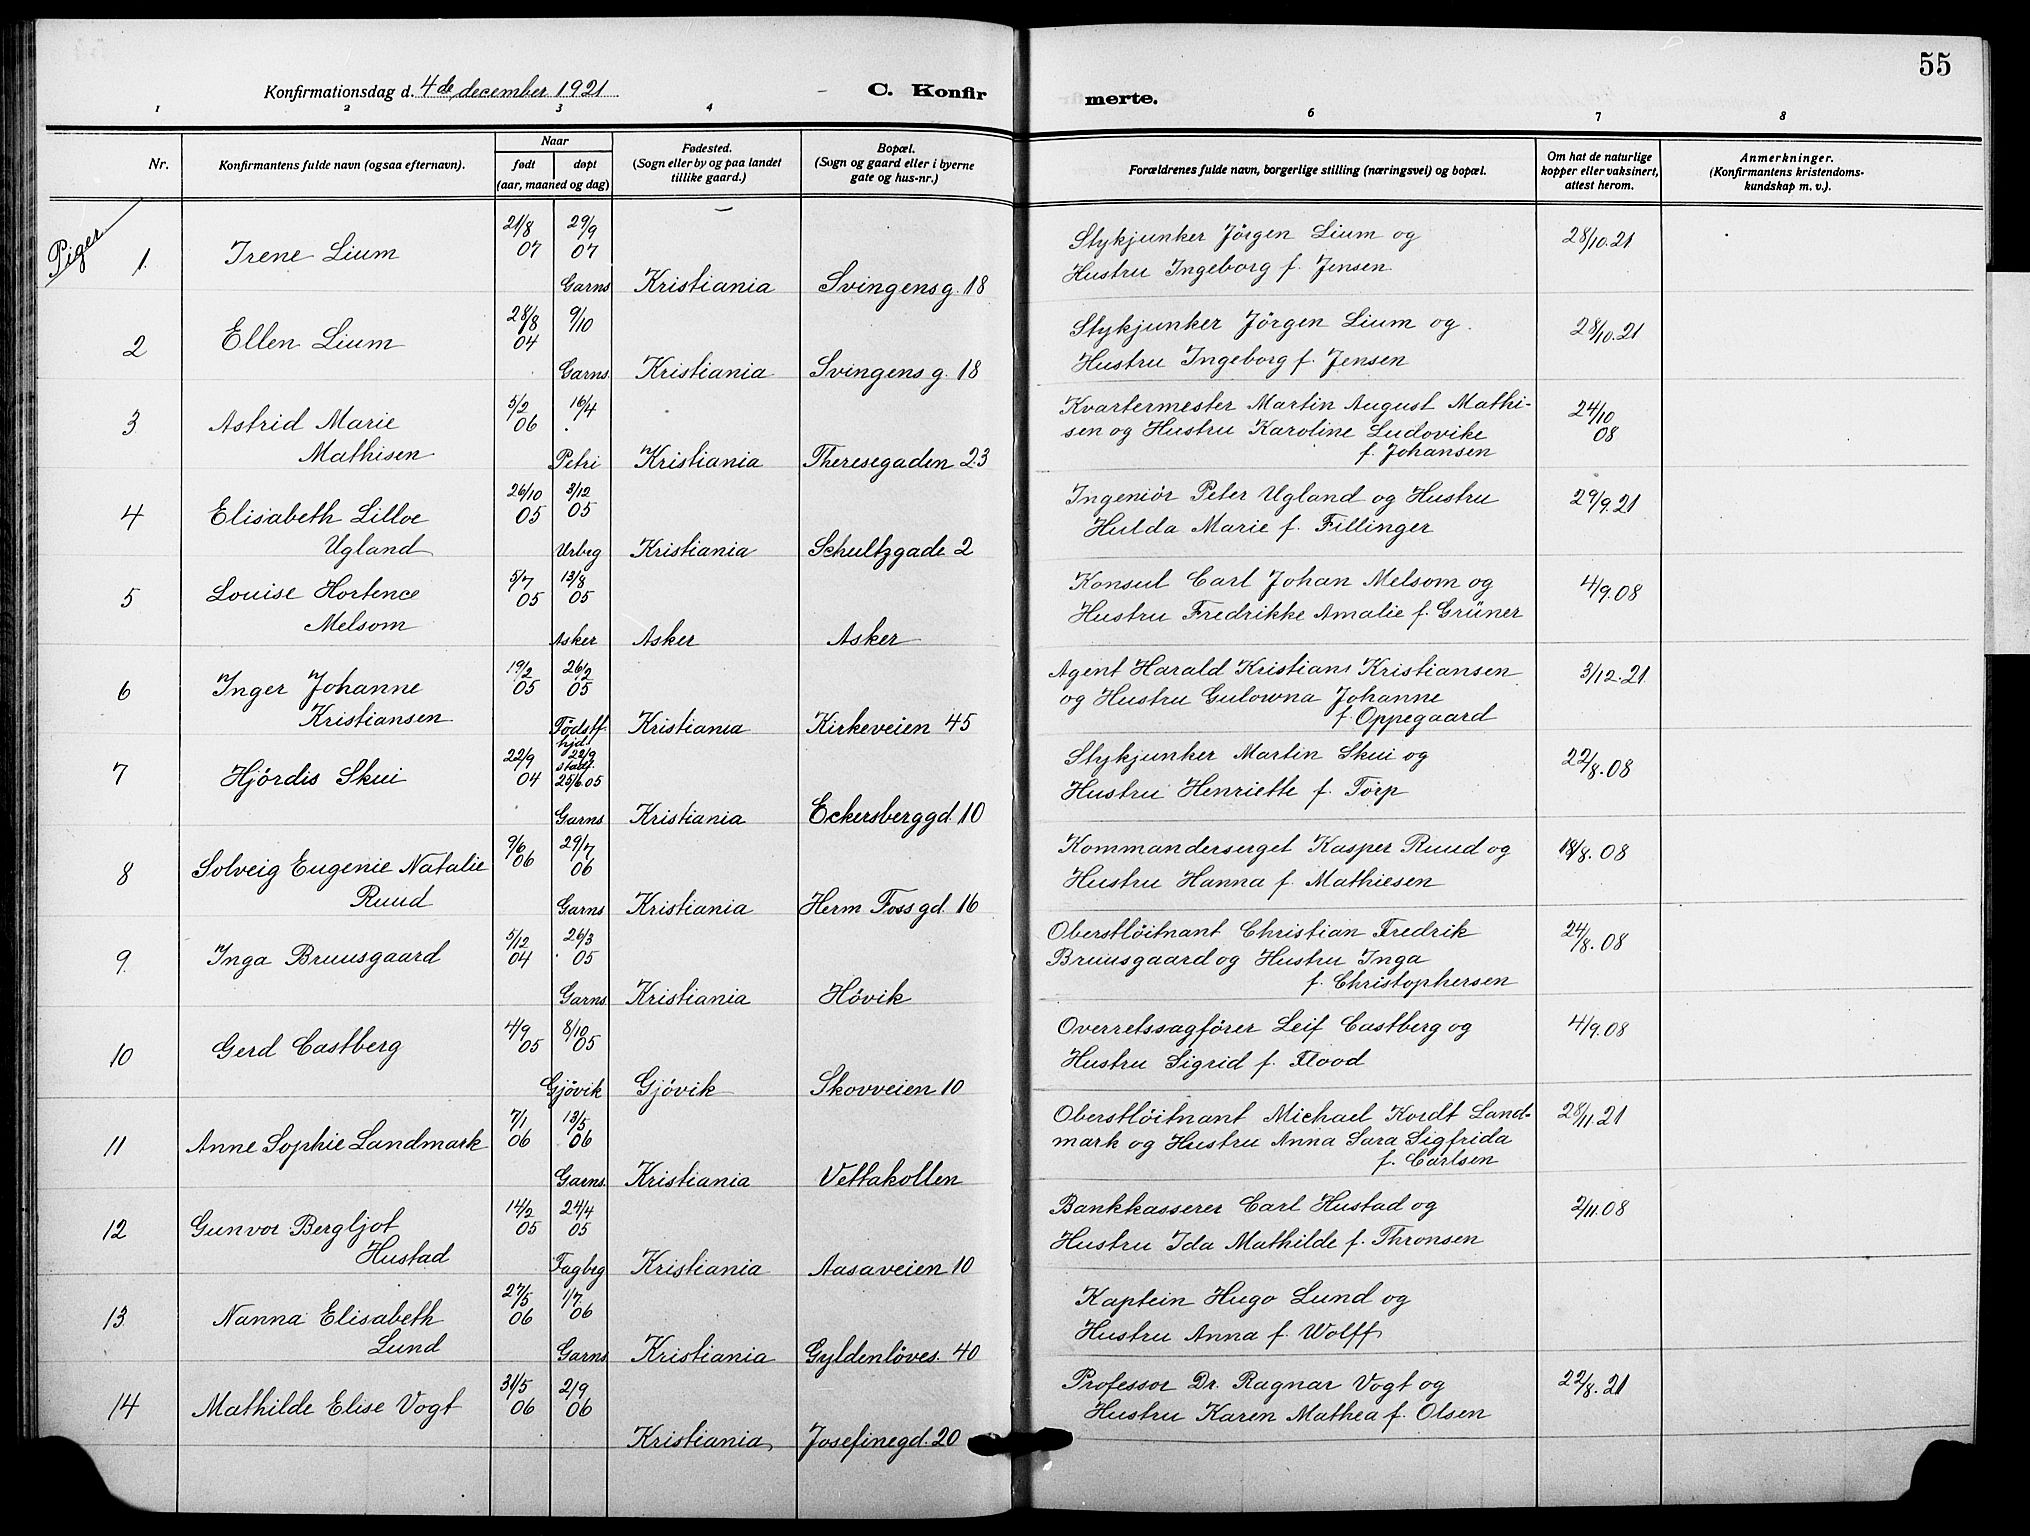 55
Konfirmationsdag d. 4de december 1921
C. Konfirmerte.
1 2 3 4 6 7 8
Nr.
Konfirmantens fulde navn (ogsaa efternavn).
Naar
født døpt
(aar, maaned og dag)
Fødested.
(Sogn eller by og paa landet
tillike gaard.)
Bopæl.
(Sogn og gaard eller i byerne
gate og hus-nr.)
Forældrenes fulde navn, borgerlige stilling (næringsvei) og bopæl.
Om hat de naturlige
kopper eller vaksinert,
attest herom.
Anmerkninger.
(Konfirmantens kristendoms-
kundskap m. v.).
Piger
1. Irene Lium 21/8 07 29/9 07 Garns Kristiania Svingensg. 18
Stykjunker Jörgen Lium og
Hustru Ingeborg f. Jensen
28/10.21
2 Ellen Lium 28/8 04 9/10 Garns. Kristiania Svingens g. 18
Stykjunker Jörgen Lium og
Hustru Ingeborg f. Jensen
28/10.21
3 Astrid Marie
Mathisen
5/2 06 16/4 Petri Kristiania Theresegaden 23
Kvartermester Martin August Mathi-
sen og Hustru Karoline Ludovike
f. Johansen
24/10 08
4 Elisabeth Lilloe
Ugland
26/10 05 3/12 05 Urbg Kristiania Schultzgade 2
Ingeniör Peter Ugland og Hustru
Hulda Marie f. Fillinger
29/9.21
5 Louise Hortence
Melsom
5/7 05 13/8 05 Asker Asker Asker
Konsul Carl Johan Melsom og
Hustru Fredrikke Amalie f. Grüner
4/9.08
6 Inger Johanne
Kristiansen
19/2 05 26/2 05 Födstf Kristiania Kirkeveien 45
Agent Harald Kristians Kristiansen
og Hustru Gulowna Johanne
f. Oppegaard
3/12.21
7 Hjördis Skui 22/9 04 hjd. 22/9 stadf. 25/6.05 Garns Kristiania Eckersberggd. 10
Stykjunker Martin Skui og
Hustru Henriette f. Törp
22/8.08
8 Solveig Eugenie Natalie
Ruud
9/6 06 29/7 06 Garns Kristiania Herm Foss gd. 16
Kommandersergt Kasper Ruud og
Hustru Hanna f. Mathiesen
18/8.08
9. Inga Bruusgaard 5/12 04 26/3 05 Garns. Kristiania Hövik
Oberstlöitnant Christian Fredrik
Bruusgaard og Hustru Inga
f. Christophersen
24/8.08
10 Gerd Castberg 4/9 05 8/10 05 Gjövik Gjövik Skovveien 10
Overretssagförer Leif Castberg og
Hustru Sigrid f. Flood
4/9.08
11 Anne Sophie Landmark 7/1 06 13/5 06 Garns. Kristiania Vettakollen
Oberstlöitnant Michael Kordt Land-
mark og Hustru Anna Sara Sigfrida
f. Carlsen
28/11.21
12 Gunvor Bergljot
Hustad
14/2 05 24/4 05 Fagbg Kristiania Aasaveien 10
Bankkasserer Carl Hustad og
Hustru Ida Mathilde f. Thronsen
2/11.08
13 Nanna Elisabeth
Lund
27/5 06 1/7 06 Garns Kristiania Gyldenlöves. 40
Kaptein Hugo Lund og
Hustru Anna f. Wolff
14 Mathilde Elise Vogt 31/5 06 2/9 06 Kristiania, Josefinegd. 20
Professor Dr. Ragnar Vogt og
Hustru Karen Mathea f. Olsen
22/8.21